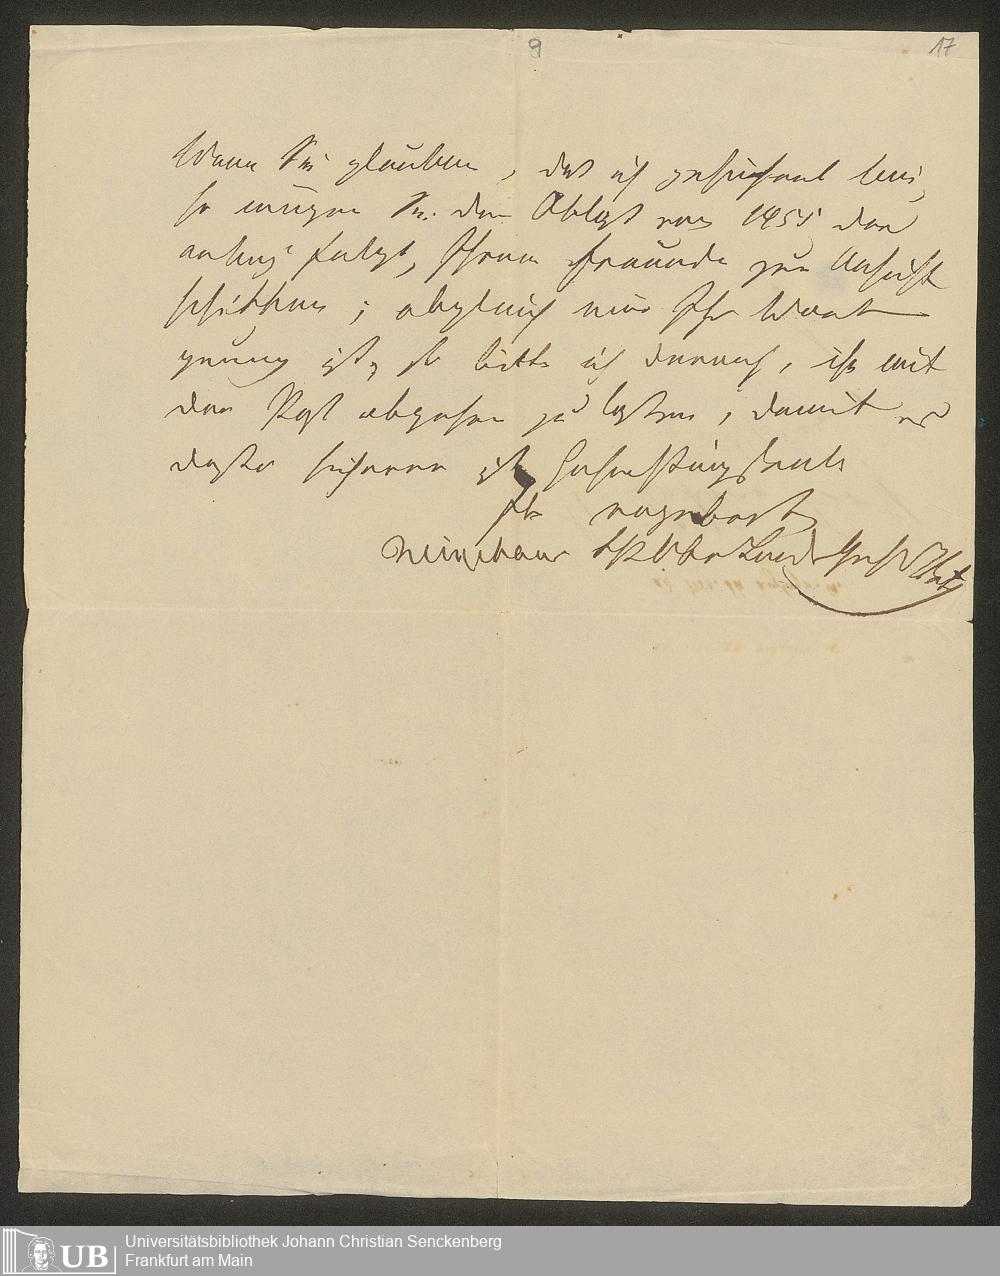 9
17
Wenn Sie glauben, daß ich gesichert bin,
so mögen Sie den Ablaß von 1455, der
anbei folgt, Ihrem Freunde zur Ansicht
schicken; obgleich mir Ihr Wort
genug ist, so bitte ich dennoch, ihn mit
der Post abgehen zu lassen, damit er
desto sicherer ist. Hochachtungsvoll
Ihr ergebenster
München
Universitätsbibliothek Johann Christian Senckenberg
Frankfurt am Main
UB